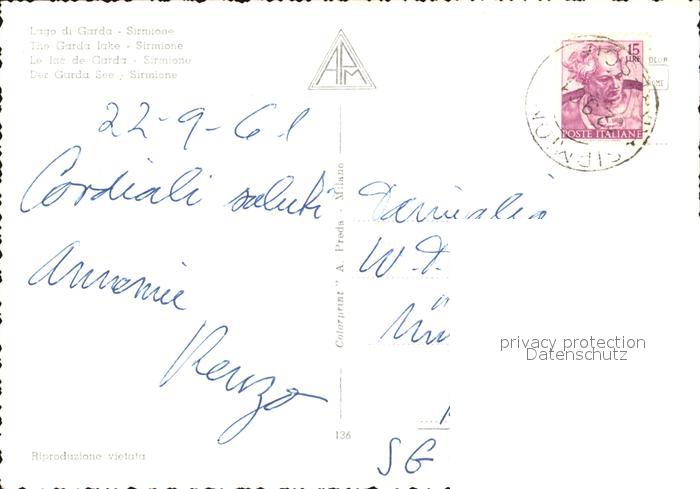 Lago di Garda - Sirmione
The Garda lake - Sirmione
Le lac de Garda - Sirmione
Der Garda See - Sirmione
APM
15
LIRE
POSTE ITALIANE
SIRMIONE
22-9-61
Cordiali saluti
Annemie
Renzo
Colorprint" A. Preda - Milano
136
Riproduzione vietata
W.
SG
privacy protection
Datenschutz